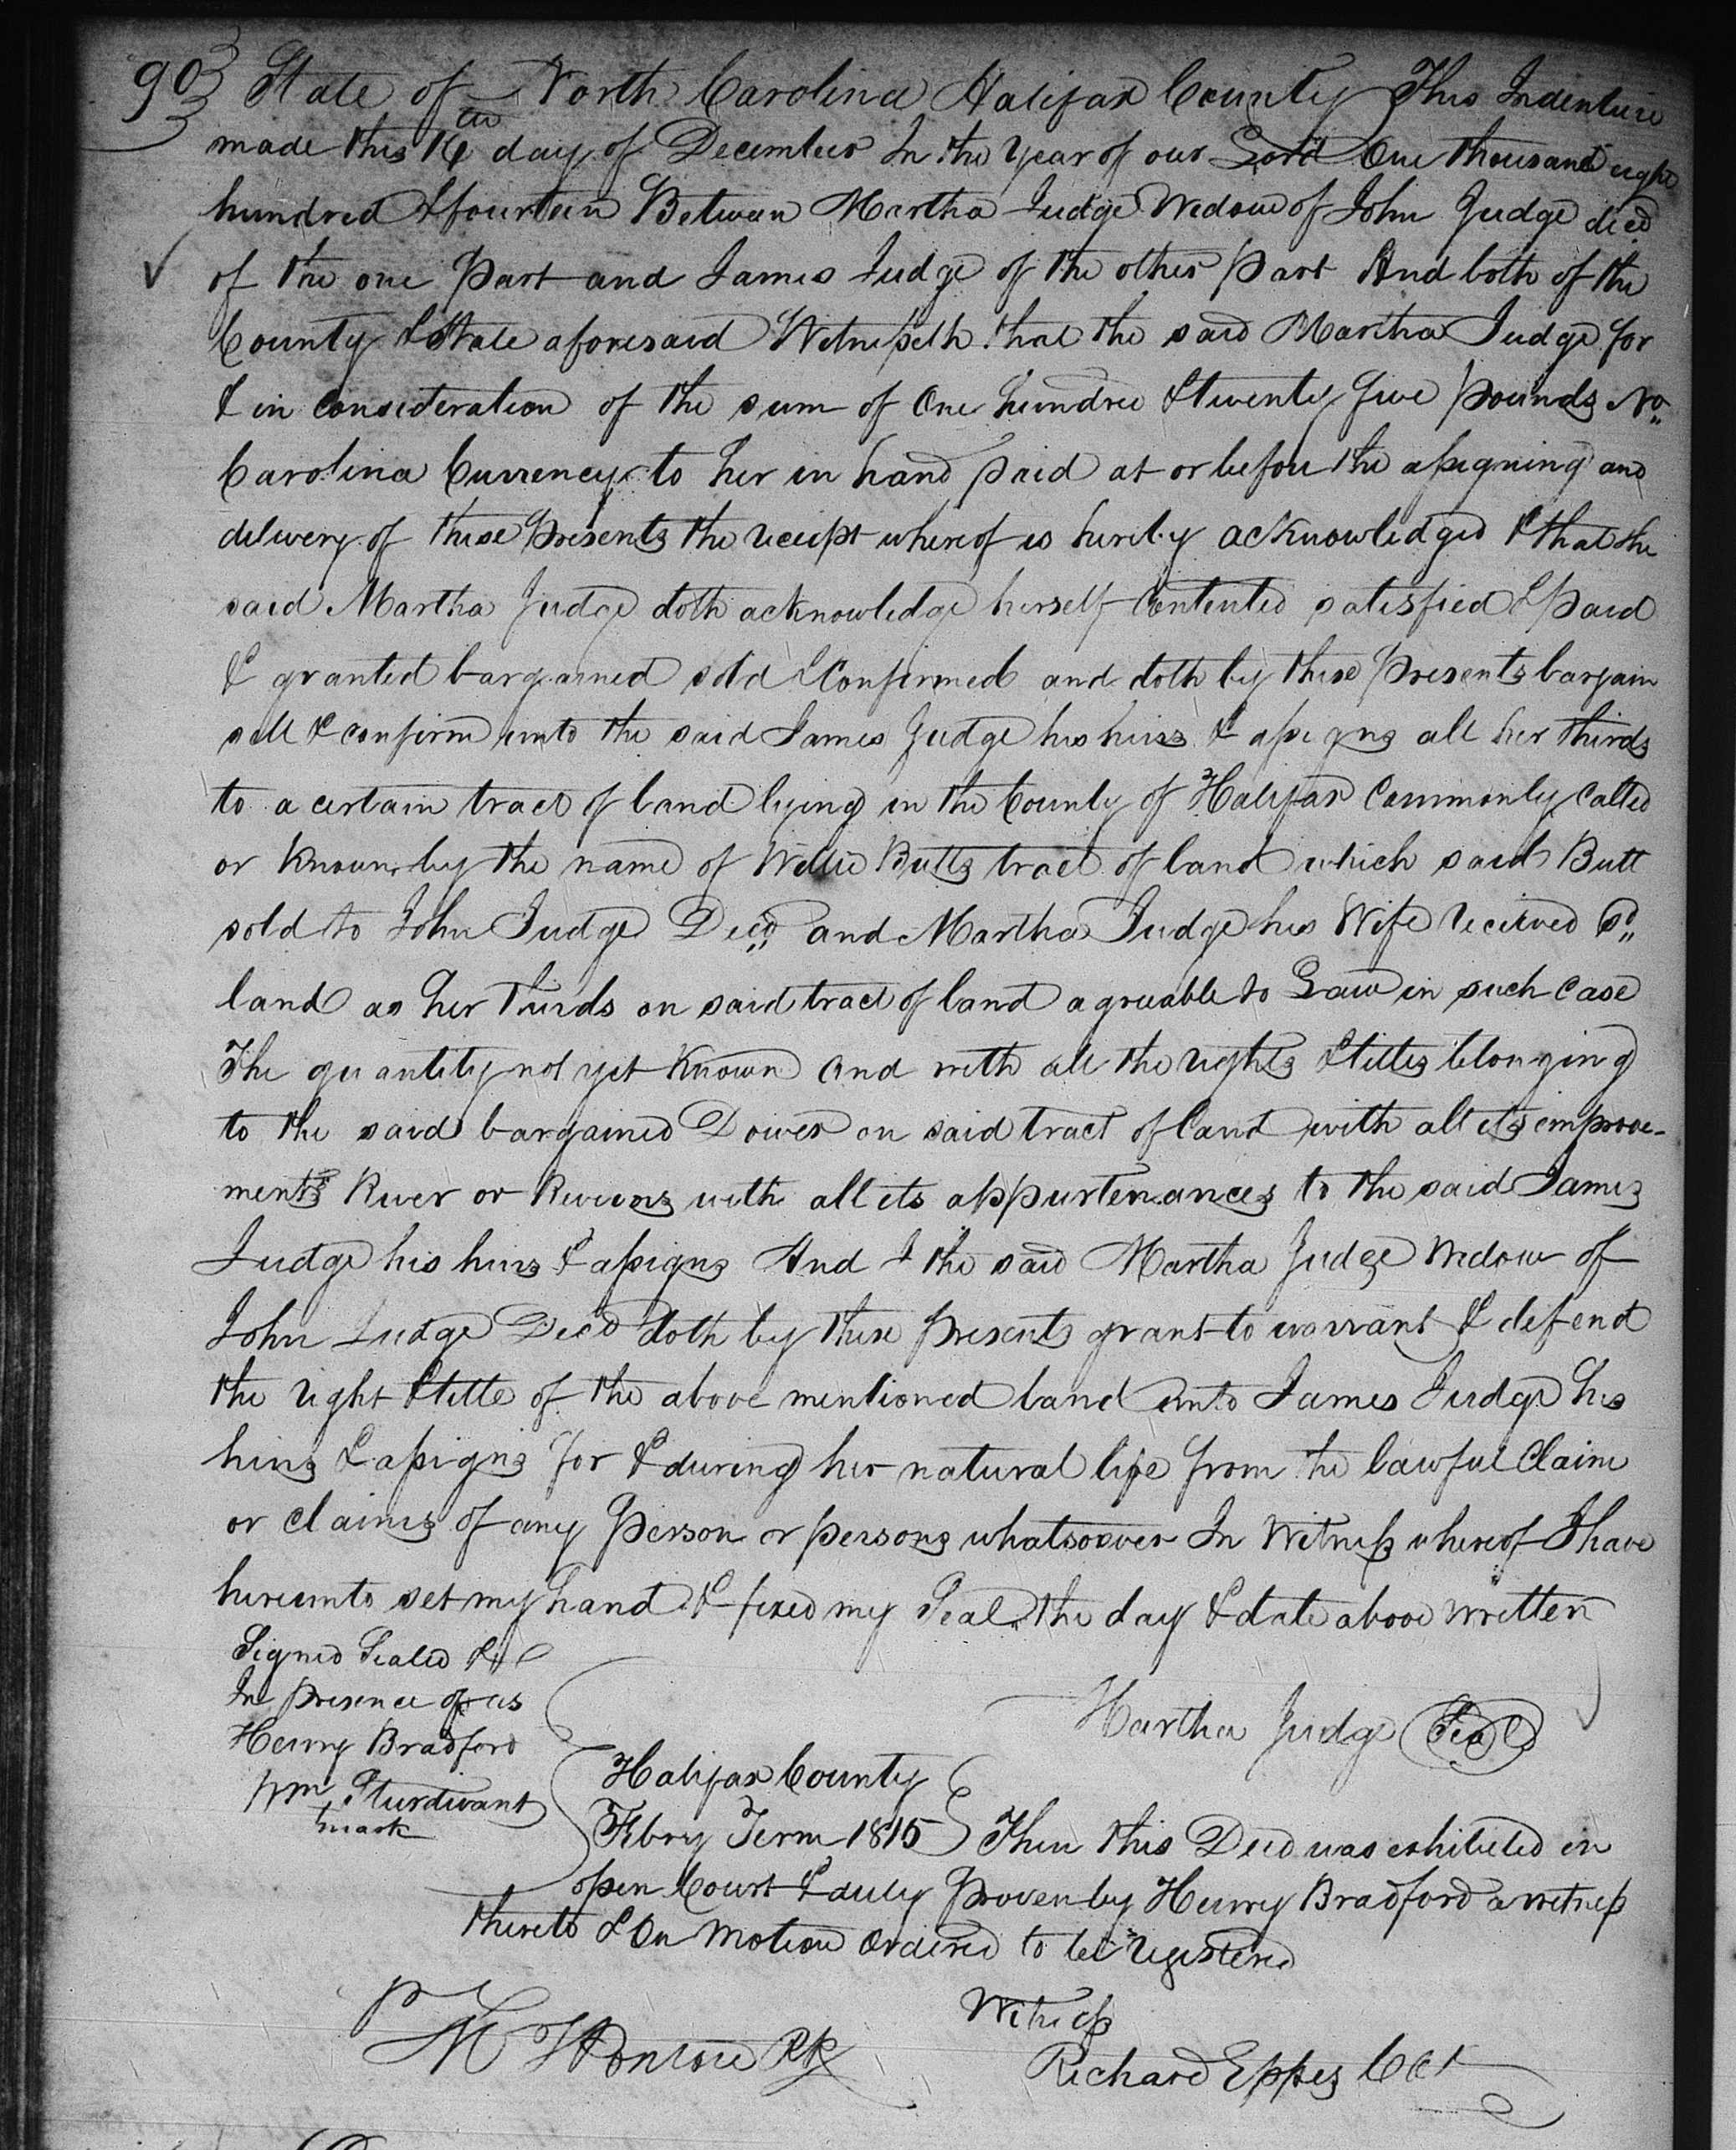 903 State of North Carolina Halifax County This Indenture
made this 16th day of December In the Year of our Lord One thousand eight
hundred & fourteen Between Martha Judge Widow of John Judge decd
of the one part and James Judge of the other part And both of the
County & State aforesaid Witnesseth that the said Martha Judge for
& in consideration of the sum of One hundred & twenty five pounds No
Carolina Currency to her in hand paid at or before the assigning and
delivery of these presents the receipt whereof is hereby acknowledged & that the
said Martha Judge doth acknowledge herself Contented satisfied & paid
& granted bargained sold & Confirmed and doth by these presents bargain
sell & confirm unto the said James Judge his heirs & assigns all her thirds
to a certain tract of land lying in the County of Halifax Commonly Called
or Known by the name of Willie Butts tract of land which said Butt
sold to John Judge Decd and Martha Judge his Wife received sd
land as her thirds on said tract of land agreeable to Law in such Case
The quantity not yet Known and with all the rights & titles belonging
to the said bargained Dower on said tract of land with all its improve-
ments River or Rivers with all its appurtenances to the said James
Judge his heirs & assigns And I the said Martha Judge Widow of
John Judge Decd doth by these presents grant to warrant & defend
the right & title of the above mentioned land unto James Judge his
heirs & assigns for & during her natural life from the lawful Claim
or claims of any Person or persons whatsoever In Witness whereof I have
hereunto set my hand & fixed my Seal the day & date above written
Signed Sealed &c
In presence of us
Henry Bradford
Wm Sturdivant
mark
Martha Judge Seal
Halifax County
Febry Term 1815 Then this Deed was exhibited in
open Court & duly Proven by Henry Bradford a witness
thereto & On motion Ordered to be registered
Witness
Richard Eppes